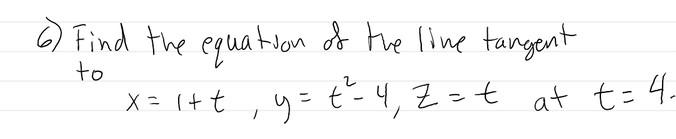 6) Find the equation of the line tangent
to
x = 1+t , y = t²- 4, z = t at t = 4.